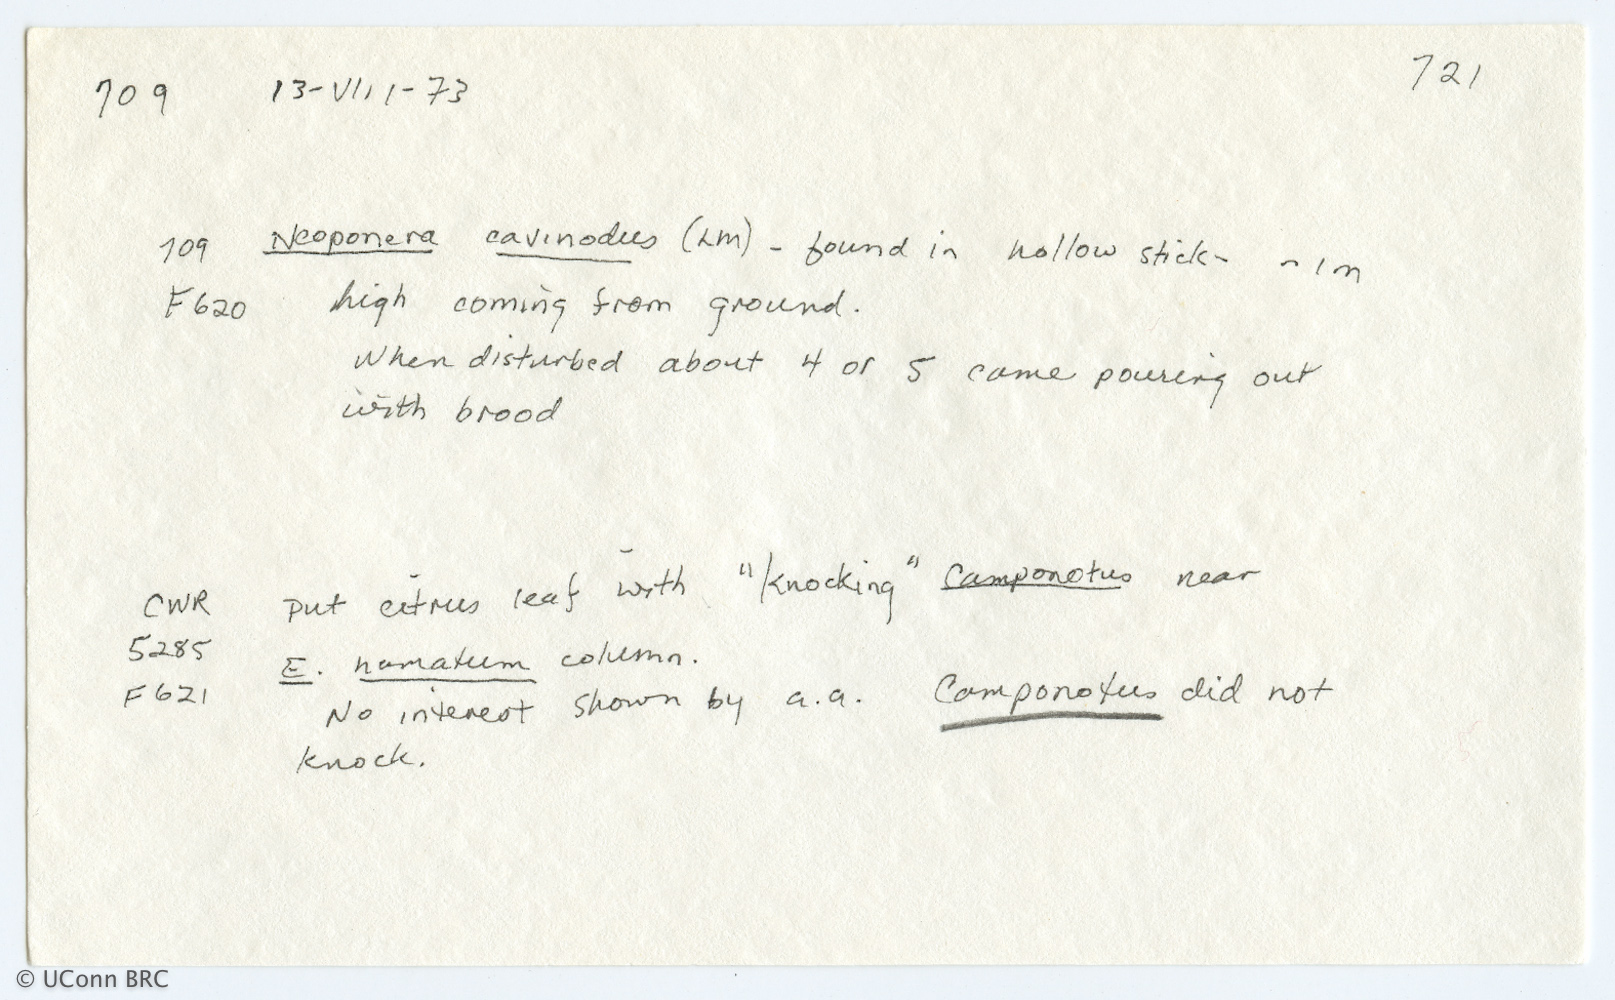 709 13-VIII-73 721
709 Neoponera cavinodus (LM) - found in hollow stick- ~ 1m
F620 high coming from ground.
When disturbed about 4 or 5 came pouring out
with brood
CWR put citrus leaf with "knocking" Camponotus near
5285 E. hamatum column.
F621 No interest shown by a.a. Camponotus did not
knock.
© UConn BRC